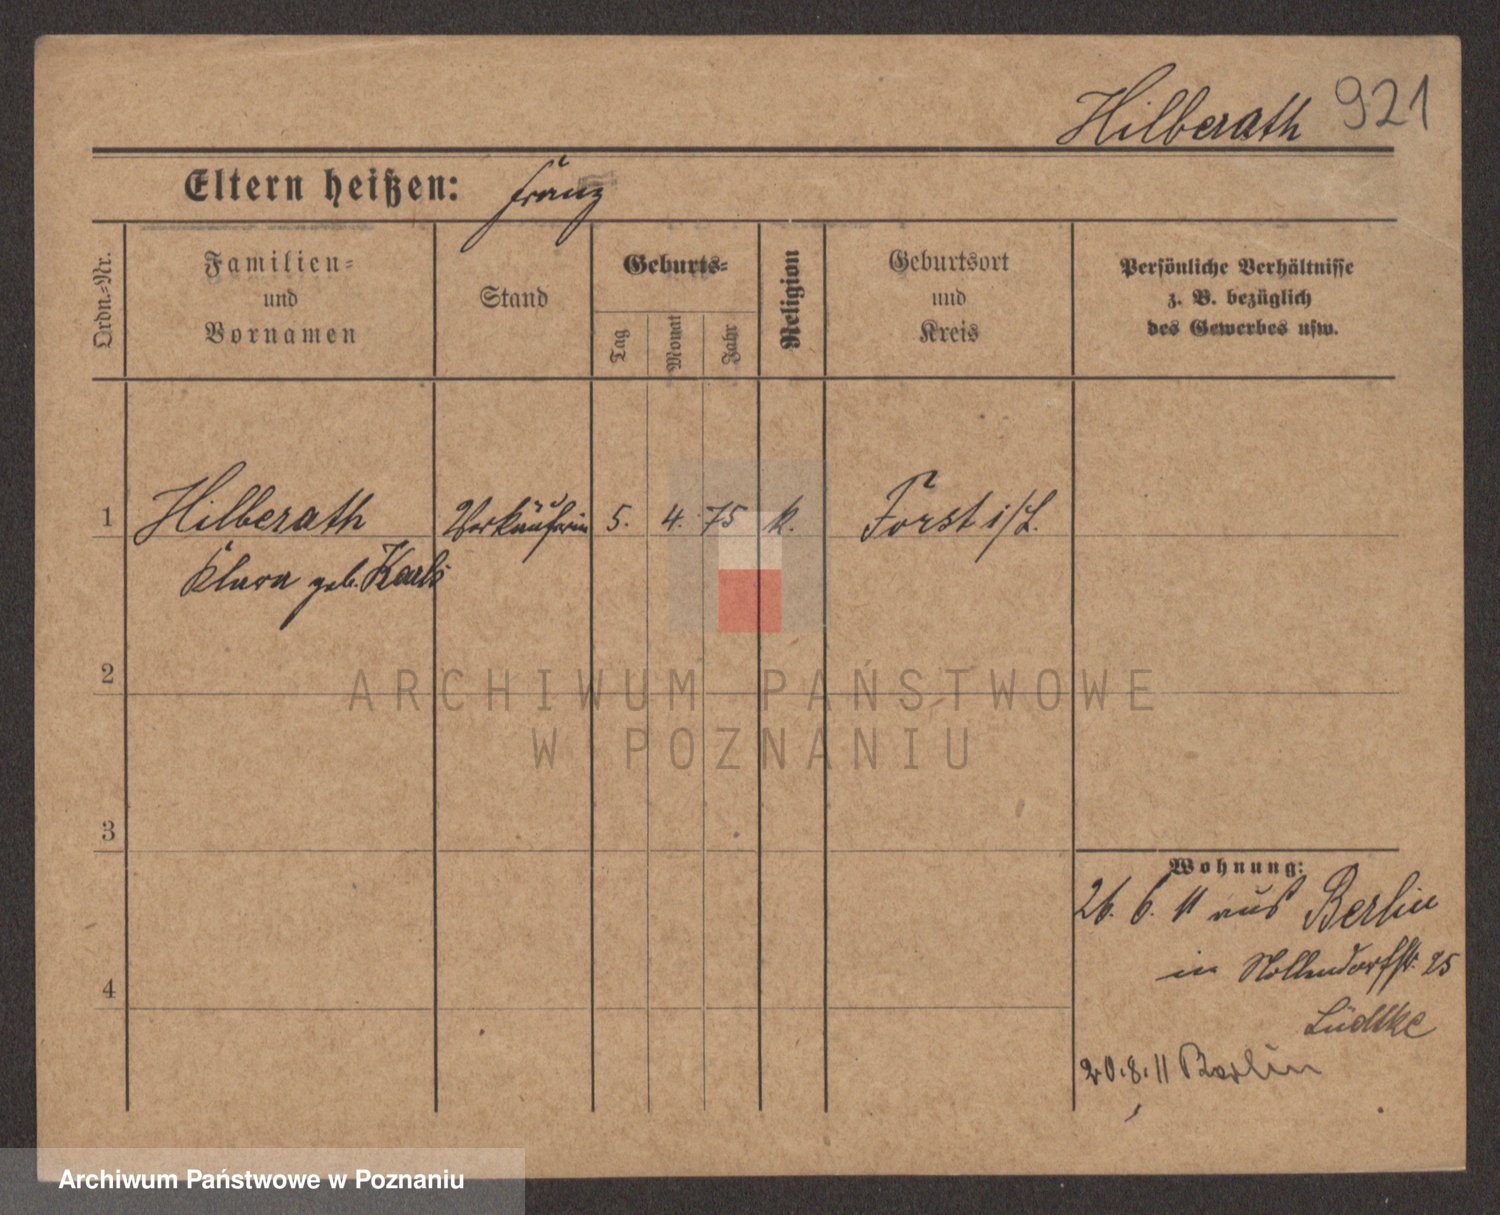 Hilberath 921
Eltern heißen: Franz
Ordn.-Nr.
Familien-
und
Vornamen
Stand
Geburts-
Tag
Monat
Jahr
Religion
Geburtsort
und
Kreis
Persönliche Verhältnisse
z. B. bezüglich
des Gewerbes usw.
1 Hilberath Verkäuferin 5. 4. 75 k. Forst i/L.
Klara geb. Karls
2
ARCHIWUM PAŃSTWOWE
W POZNANIU
3
Wohnung:
26. 6. 11 aus Berlin
in Nollendorfstr. 25
Lüdtke
4
20.8.11 Berlin
Archiwum Państwowe w Poznaniu